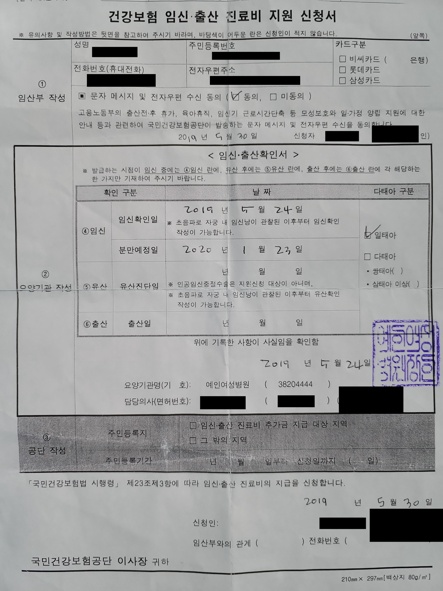 건강보험 임신·출산 진료비 지원 신청서
※ 유의사항 및 작성방법은 뒷면을 참고하여 주시기 바라며, 바탕색이 어두운 란은 신청인이 적지 않습니다. (앞쪽)
① 임산부 작성
성명
주민등록번호
카드구분
□ 비씨카드 ( 은행)
□ 롯데카드
□ 삼성카드
전화번호(휴대전화)
전자우편주소
문자 메시지 및 전자우편 수신 동의 ( 동의, □ 미동의 )
고용노동부의 출산전·후 휴가, 육아휴직, 임신기 근로시간단축 등 모성보호와 일가정 양립 지원에 대한
안내 등과 관련하여 국민건강보험공단이 발송하는 문자 메시지 및 전자우편 수신을 동의합니다.
2019 년 5 월 30 일 신청자 인)
② 요양기관 작성
< 임신·출산확인서 >
※ 발급하는 시점이 임신 중에는 ④임신 란에, 유산 후에는 ⑤유산 란에, 출산 후에는 ⑥출산 란에 각 해당하는
한 가지만 기재하여 주시기 바랍니다.
확인 구분 날 짜 다태아 구분
④임신
임신확인일 2019 년 5 월 24 일
※ 초음파로 자궁 내 임신낭이 관찰된 이후부터 임신확인
작성이 가능합니다.
분만예정일 2020 년 1 월 23 일
일태아
□ 다태아
· 쌍태아( )
· 삼태아 이상( )
⑤유산 유산진단일 년 월 일
※ 인공임신중절수술은 지원신청 대상이 아니며,
※ 초음파로 자궁 내 임신낭이 관찰된 이후부터 유산확인
작성이 가능합니다.
⑥출산 출산일 년 월 일
위에 기록한 사항이 사실임을 확인함
2019 년 5 월 24 일
요양기관명(기 호): 예인여성병원 ( 38204444 )
담당의사(면허번호): ( )
③ 공단 작성
주민등록지
□ 임신·출산 진료비 추가금 지급 대상 지역
□ 그 밖의 지역
주민등록기간 년 월 일부터 신청일까지 ( 일)
「국민건강보험법 시행령」 제23조제3항에 따라 임신·출산 진료비의 지급을 신청합니다.
2019 년 5 월 30 일
신청인:
임산부와의 관계 ( ) 전화번호 (
국민건강보험공단 이사장 귀하
210mm× 297mm[백상지 80g/㎡]